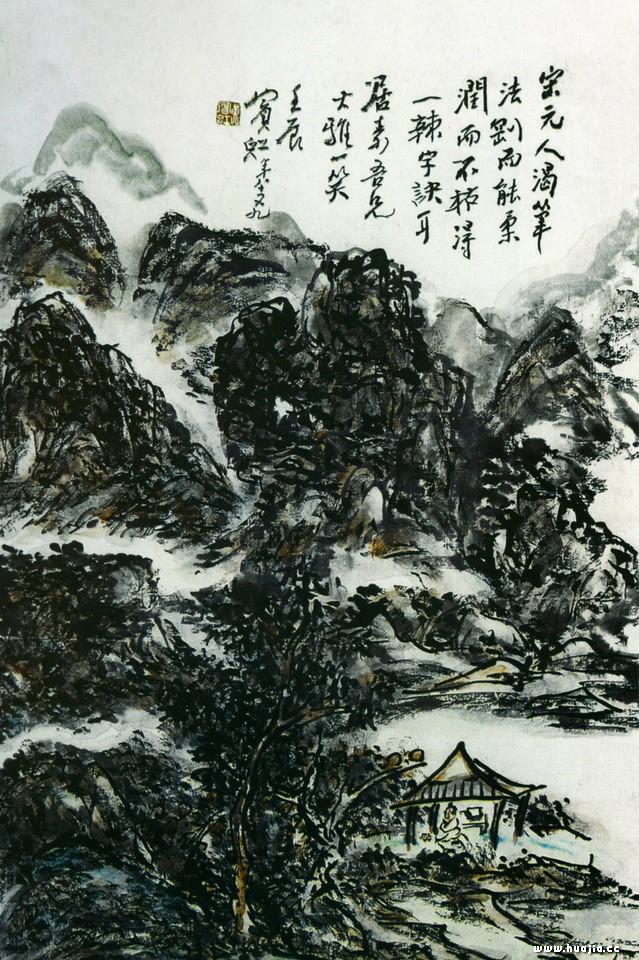 宋元人渴筆
法剛而能柔
潤而不枯得
一辣字訣耳
居素吾兄
大雅一笑
壬辰
賓虹年八十九
www.huajia.cc